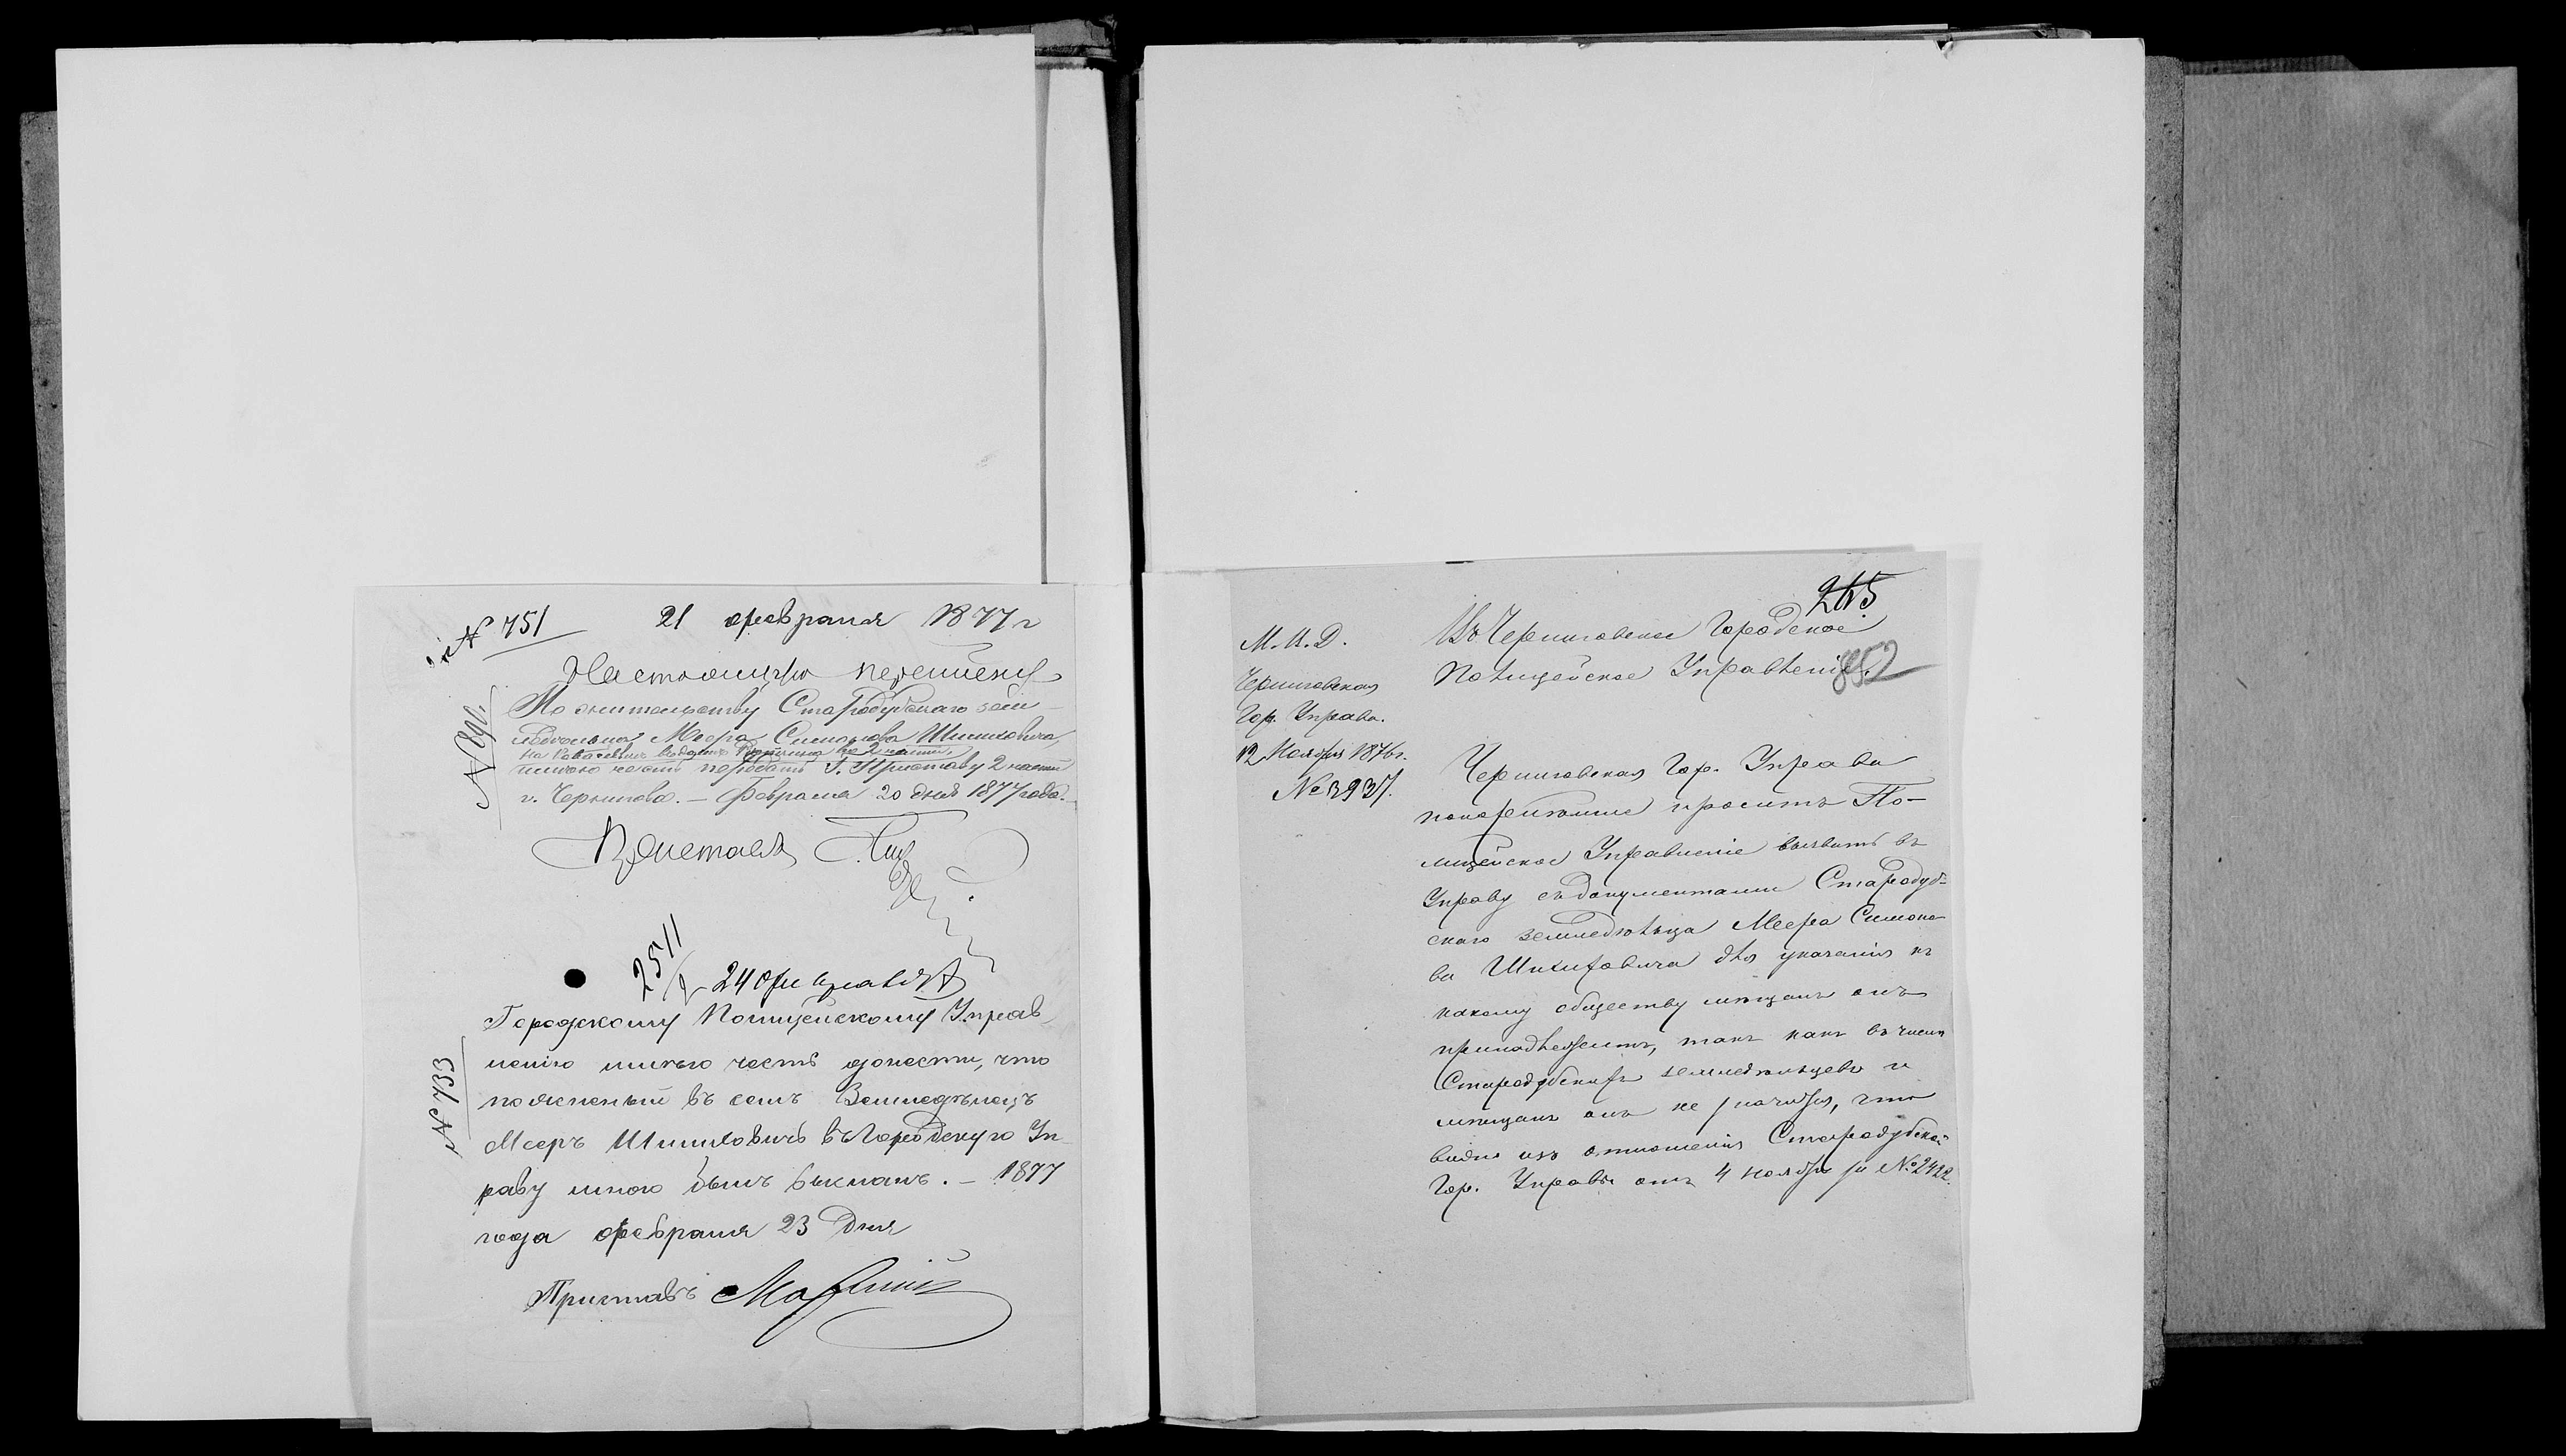 № 751 21 февраля 1877 г
Настоящую переписку
По жительству Стародубскаго зем-
ледельца Меера Симонова Шишковича,
во 2 части,
имею честь передать Г. Приставу 2 части
г. Чернигова. – Февраля 20 дня 1877 года.
Приставъ
2511
24 февраля
Городскому Полицейскому Управ-
ленію имѣю честь донести, что
поясненный въ семъ Земледѣлецъ
Мееръ Шишковичъ въ Городскую Уп-
раву мною былъ высланъ. – 1877
года февраля 23 дня
Приставъ
№ 133
245
852
М. В. Д.
Черниговская
Гор. Управа.
12 Ноября 1876 г.
№ 3937.
Въ Черниговское Городское
Полицейское Управленіе.
Черниговская Гор. Управа
покорнѣйше проситъ По-
лицейское Управленіе выслать въ
Управу съ документами Стародуб-
скаго земледѣльца Меера Симоно-
ва для указанія къ
какому обществу мѣщанъ онъ
принадлежитъ, такъ какъ въ числѣ
Стародубскихъ земледѣльцевъ и
мѣщанъ онъ не значится, что
видно изъ отношенія Стародубской
Гор. Управы отъ 4 ноября за № 2422.